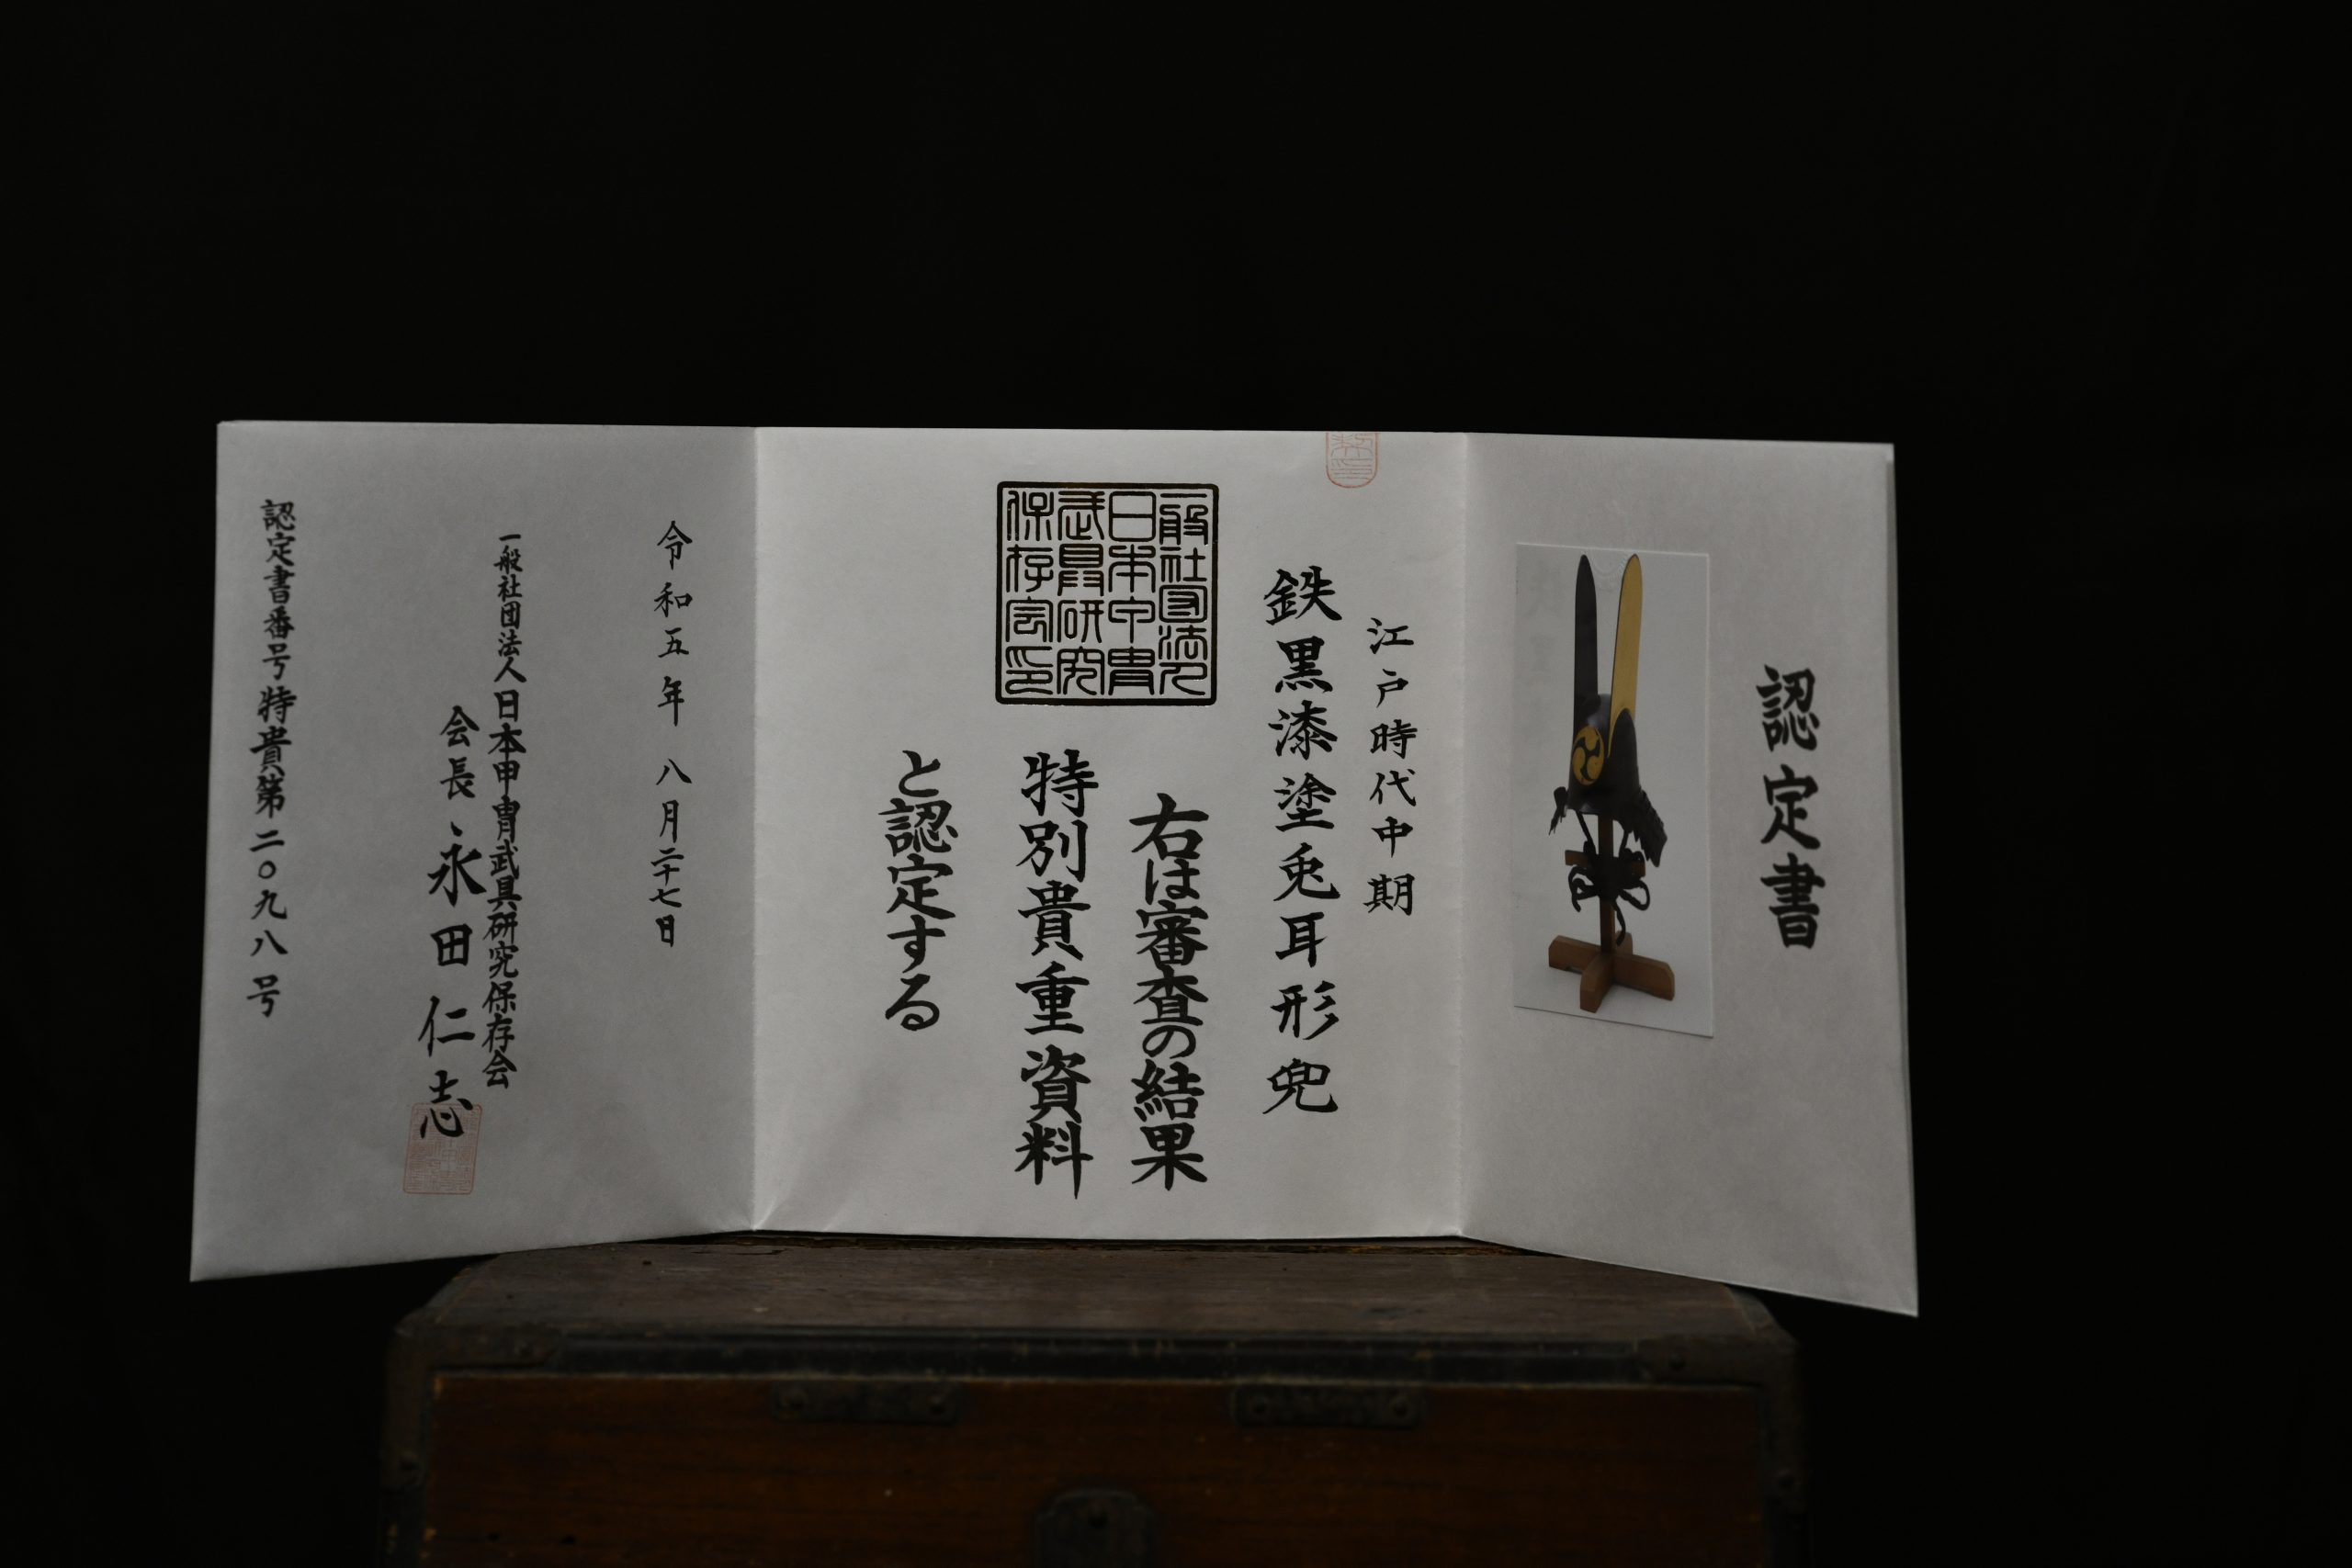 認定書
江戸時代中期
鉄黒漆塗兎耳形兜
一般社団法人
日本甲冑
武具研究
保存会印
右は審査の結果
特別貴重資料
と認定する
令和五年八月二十七日
一般社団法人日本甲冑武具研究保存会
会長、永田仁志
認定書番号特貴第二〇九八号